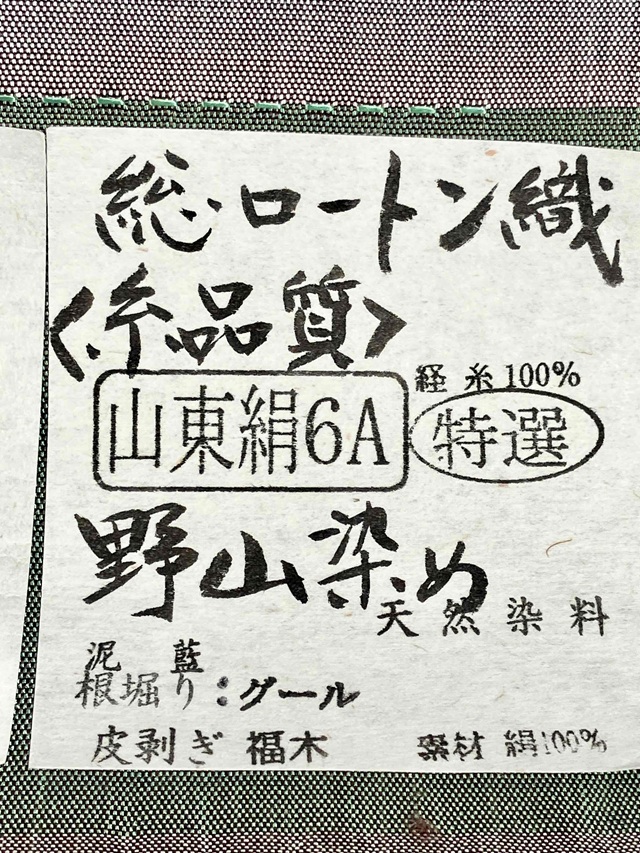 総ロートン織
〈糸品質〉
経糸100%
山東絹6A 特選
野山染め
天然染料
泥 藍
根堀り：グール
皮剥ぎ 福木 素材 絹100%